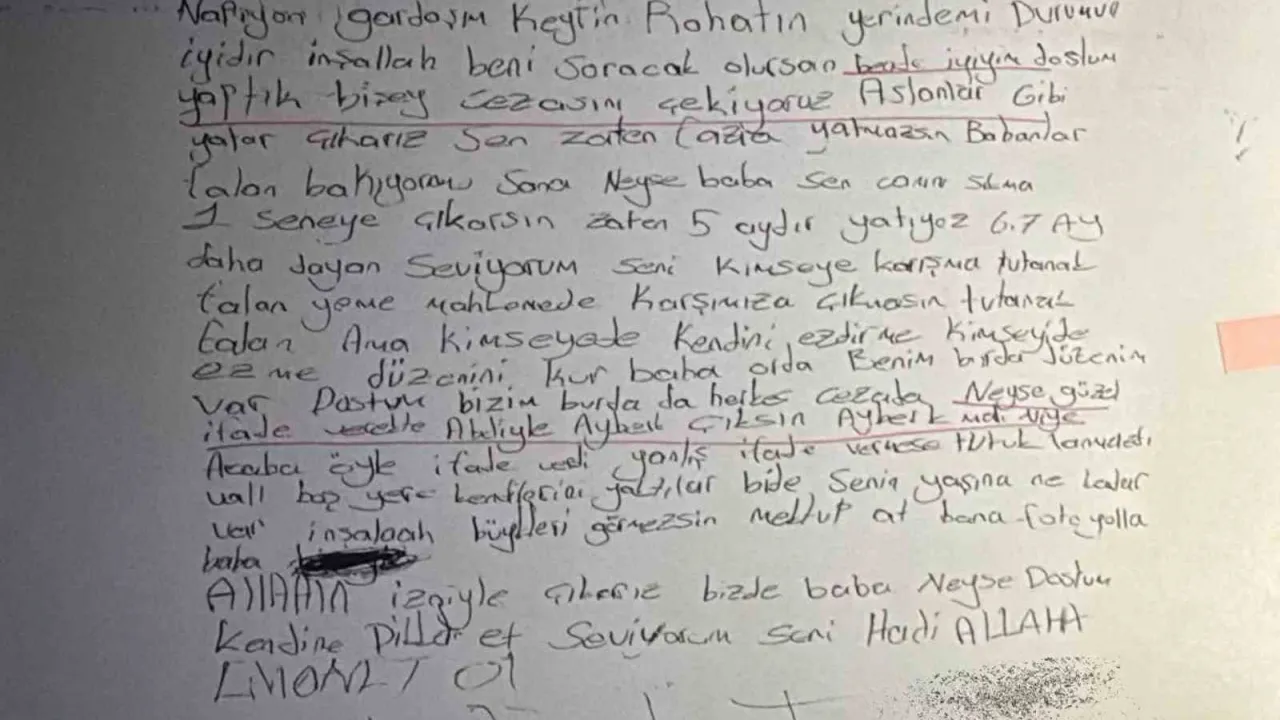 Napıyon gardaşım Keyfin Rohatın yerindemi Durumun
iyidir inşallah beni soracak olursan bende iyiyim dostum
yaptık bizey cezasını çekiyoruz Aslanlar Gibi
yatar çıkarız Sen zaten fazla yatmazsın Babanlar
falan bakıyormu Sana Neyse baba sen canını sıkma
1 seneye çıkarsın zaten 5 aydır yatıyoz 6.7 Ay
daha dayan Seviyorum seni kimseye karışma tutanak
falan yeme mahkemede karşımıza çıkmasın tutanak
falan Ama kimseyede kendini ezdirme kimseyide
ezme düzenini kur baba orda Benim burda düzenim
var Dostum bizim burda da herkes cezada Neyse güzel
ifade Abdiyle Ayberk çıksın Ayberk niye
Acaba öyle ifade verdi yanlış ifade vermese tutuk
vall boş yere yattılar bide Senin yaşına ne kadar
var inşalaah büyükleri görmezsin mektup at bana foto yolla
baba
AllAHIN izniyle çıkarız bizde baba Neyse Dostum
kendine Dikkat et Seviyorum seni Hadi ALLAHA
EMANET Ol